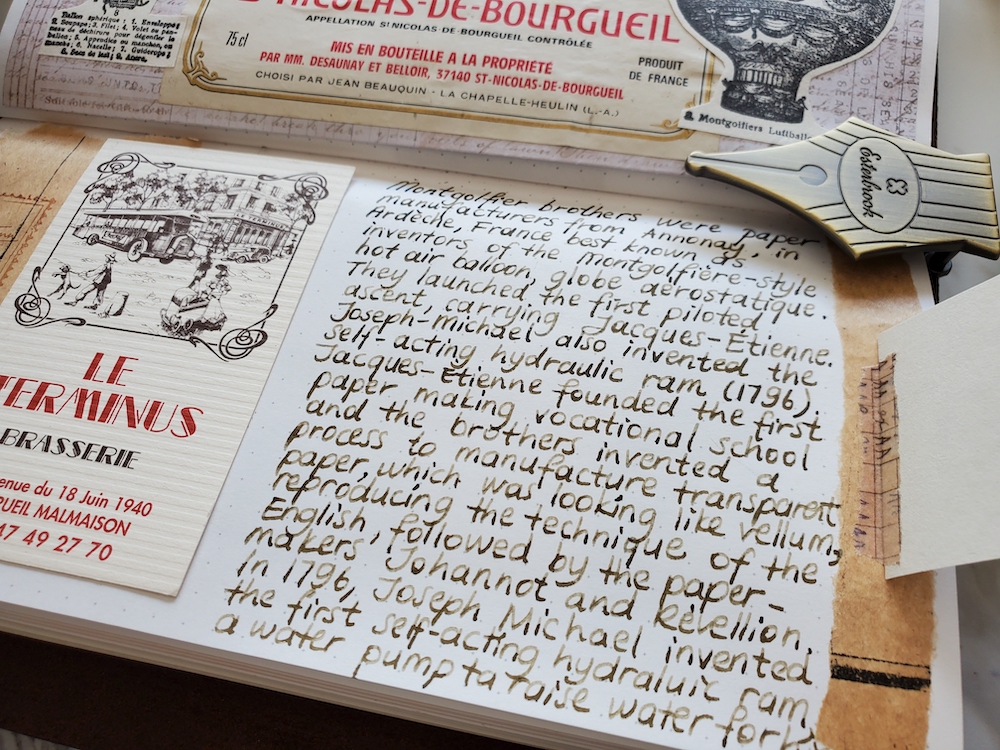 8
Ballon sphérique : 1. Enveloppe;
Soupape; 3. Filet; 4. Volet ou pan-
neau de déchirure pour dégonfler le
5. Appendice ou manchon, ou
manche; 6. Nacelle; 7. Guiderope;
8. Sacs de lest; 9. Ancre.
NICOLAS-DE-BOURGUEIL
APPELLATION ST NICOLAS DE BOURGUEIL CONTRÔLÉE
75 cl
MIS EN BOUTEILLE A LA PROPRIÉTÉ
PAR MM. DESAUNAY ET BELLOIR, 37140 ST-NICOLAS-DE-BOURGUEIL
CHOISI PAR JEAN BEAUQUIN - LA CHAPELLE-HEULIN (L.-A.)
PRODUIT
DE FRANCE
8. Montgolfiers Luftball
Esterbrook
LE
TERMINUS
BRASSERIE
enue du 18 Juin 1940
RUEIL MALMAISON
47 49 27 70
Montgolfier brothers were paper
manufacturers from Annonay, in
Ardèche, France best known as
inventors of the Montgolfière-style
hot air balloon, globe aérostatique.
They launched the first piloted
ascent, carrying Jacques-Étienne.
Joseph-Michael also invented the
self-acting hydraulic ram (1796),
Jacques-Étienne founded the first
paper making vocational school
and the brothers invented a
process to manufacture transparent
paper, which was looking like vellum,
reproducing the technique of the
English, followed by the paper-
makers Johannot and Réveillion.
In 1796, Joseph Michael invented
the first self-acting hydraluic ram,
a water pump to raise water for